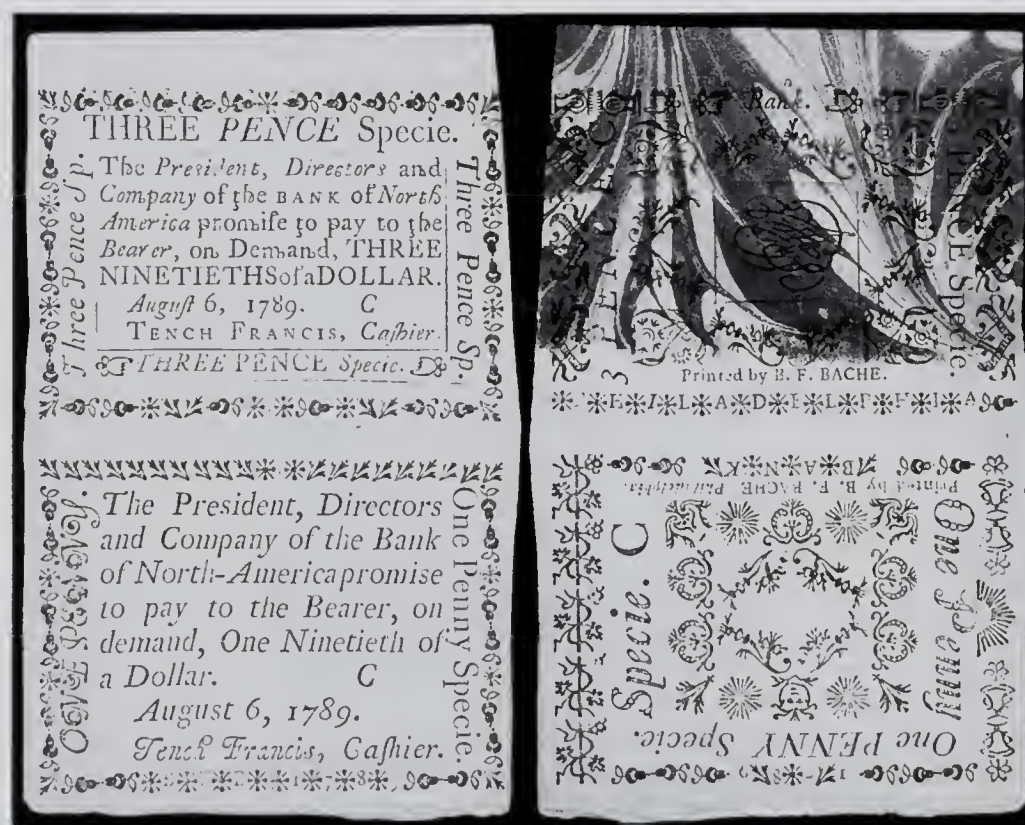 THREE PENCE Specie.
The President, Directors and
Company of the BANK of North
America promiſe to pay to the
Bearer, on Demand, THREE
NINETIETHS of a DOLLAR.
Auguſt 6, 1789. C
TENCH FRANCIS, Caſhier.
THREE PENCE Specie.
Three Pence Sp.
Three Pence Sp.
The President, Directors
and Company of the Bank
of North-America promise
to pay to the Bearer, on
demand, One Ninetieth of
a Dollar. C
August 6, 1789.
Tench Francis, Caſhier.
ONE PENNY.
One Penny Specie.
1789
Bank.
3 PENCE
PENCE Specie.
Printed by B. F. BACHE.
PHILADELPHIA
BANK
Printed by B. F. BACHE Philadelphia.
Specie. C
One Penny
One PENNY Specie.
1789